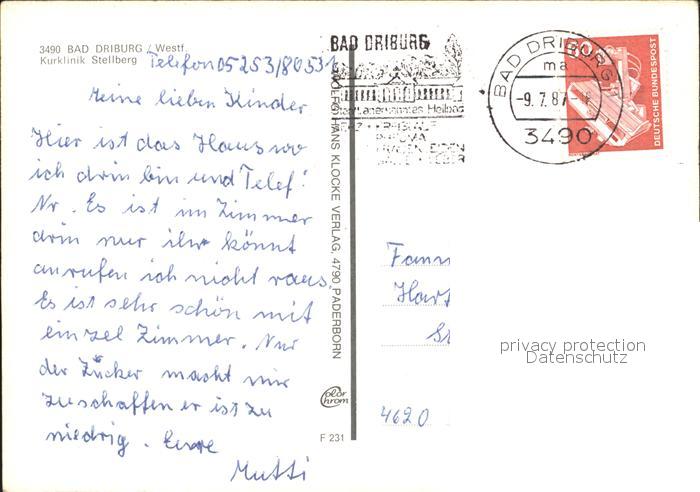 3490 BAD DRIBURG / Westf.
Kurklinik Stellberg
Telefon 05253/80531
Meine lieben Kinder
Hier ist das Haus wo
ich drin bin und Telef.
Nr. Es ist im Zimmer
drin nur ihr könnt
anrufen ich nicht raus,
Es ist sehr schön mit
einzel Zimmer. Nur
der Zucker macht mir
zuschaffen er ist zu
niedrig. Eure
Mutti
HANS KLOCKE VERLAG, 4790 PADERBORN
color
chrom
F 231
BAD DRIBURG
BAD DRIBURG 1
ma
-9.7.87-
3490
DEUTSCHE BUNDESPOST
Fam
Hart
St
4620
privacy protection
Datenschutz